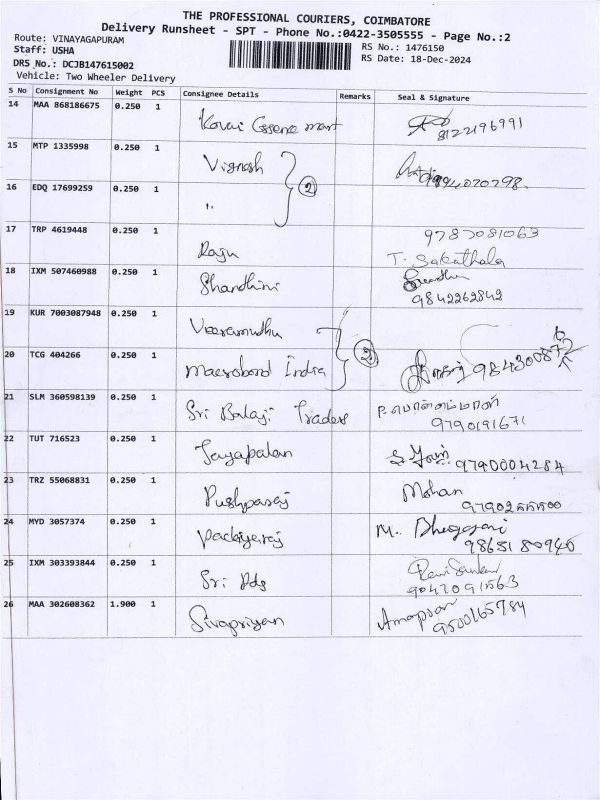 THE PROFESSIONAL COURIERS, COIMBATORE
Delivery Runsheet - SPT - Phone No.:0422-3505555 - Page No.:2
Route: VINAYAGAPURAM
Staff: USHA
DRS_No.: DCJB147615002
Vehicle: Two Wheeler Delivery
RS No.: 1476150
RS Date: 18-Dec-2024
S No Consignment No Weight PCS Consignee Details Remarks Seal & Signature
14 MAA 868186675 0.250 1 Kovai Essence mart 8122196991
15 MTP 1335998 0.250 1 Vignesh 9994020798
16 EDQ 17699259 0.250 1 " 2
17 TRP 4619448 0.250 1 Raju 9787081063
T. Sakuthala
18 IXM 507460988 0.250 1 Shandhini
9842262842
19 KUR 7003087948 0.250 1 Veeramuthu
20 TCG 404266 0.250 1 Macrobond India 2
21 SLM 360598139 0.250 1 Sri Balaji Traders P. பொன்னம்மாள்
9790191671
22 TUT 716523 0.250 1 Jayapalan 9790004284
23 TRZ 55068831 0.250 1 Pushparaj Mohan
24 MYD 3057374 0.250 1 Packiyaraj M.
9865180940
25 IXM 303393844 0.250 1 Sri Ads
26 MAA 302608362 1.900 1 Sivapriyan
9500165784